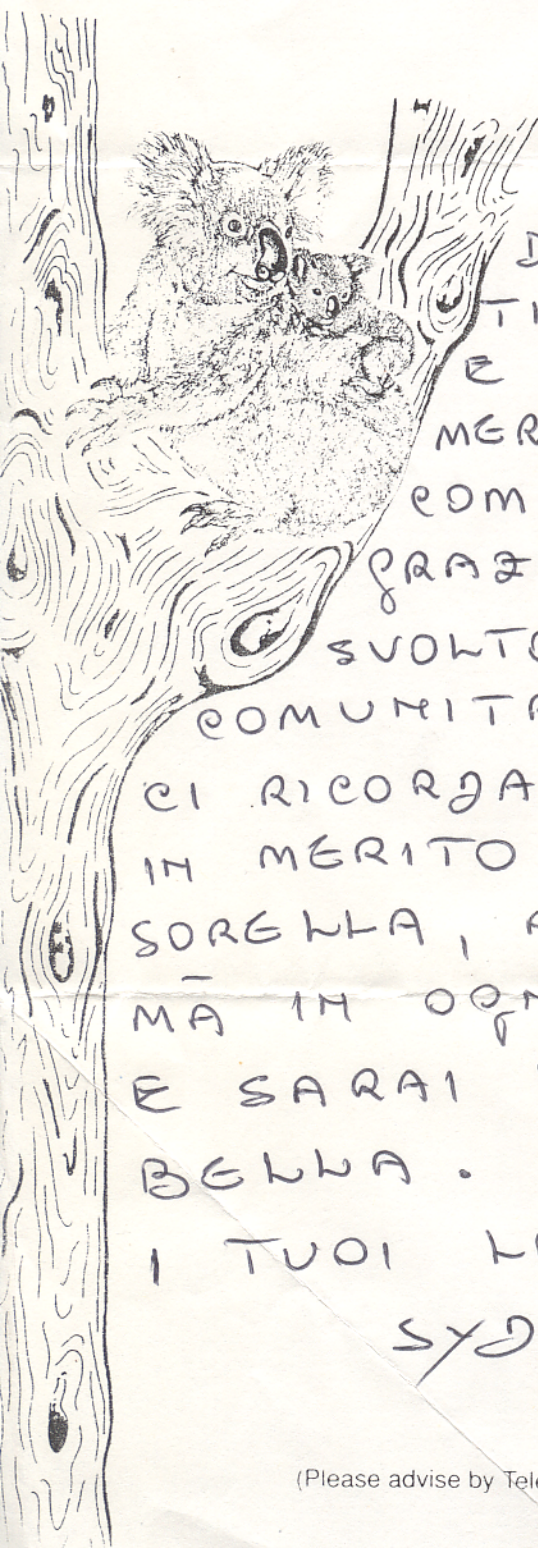 D
TI
E
MER
COM
GRAZ
SVOLTO
COMUNITA
CI RICORDA
IN MERITO
SORELLA, A
MĀ IN OGN
E SARAI
BELLA.
I TUOI L
SYD
(Please advise by Tele